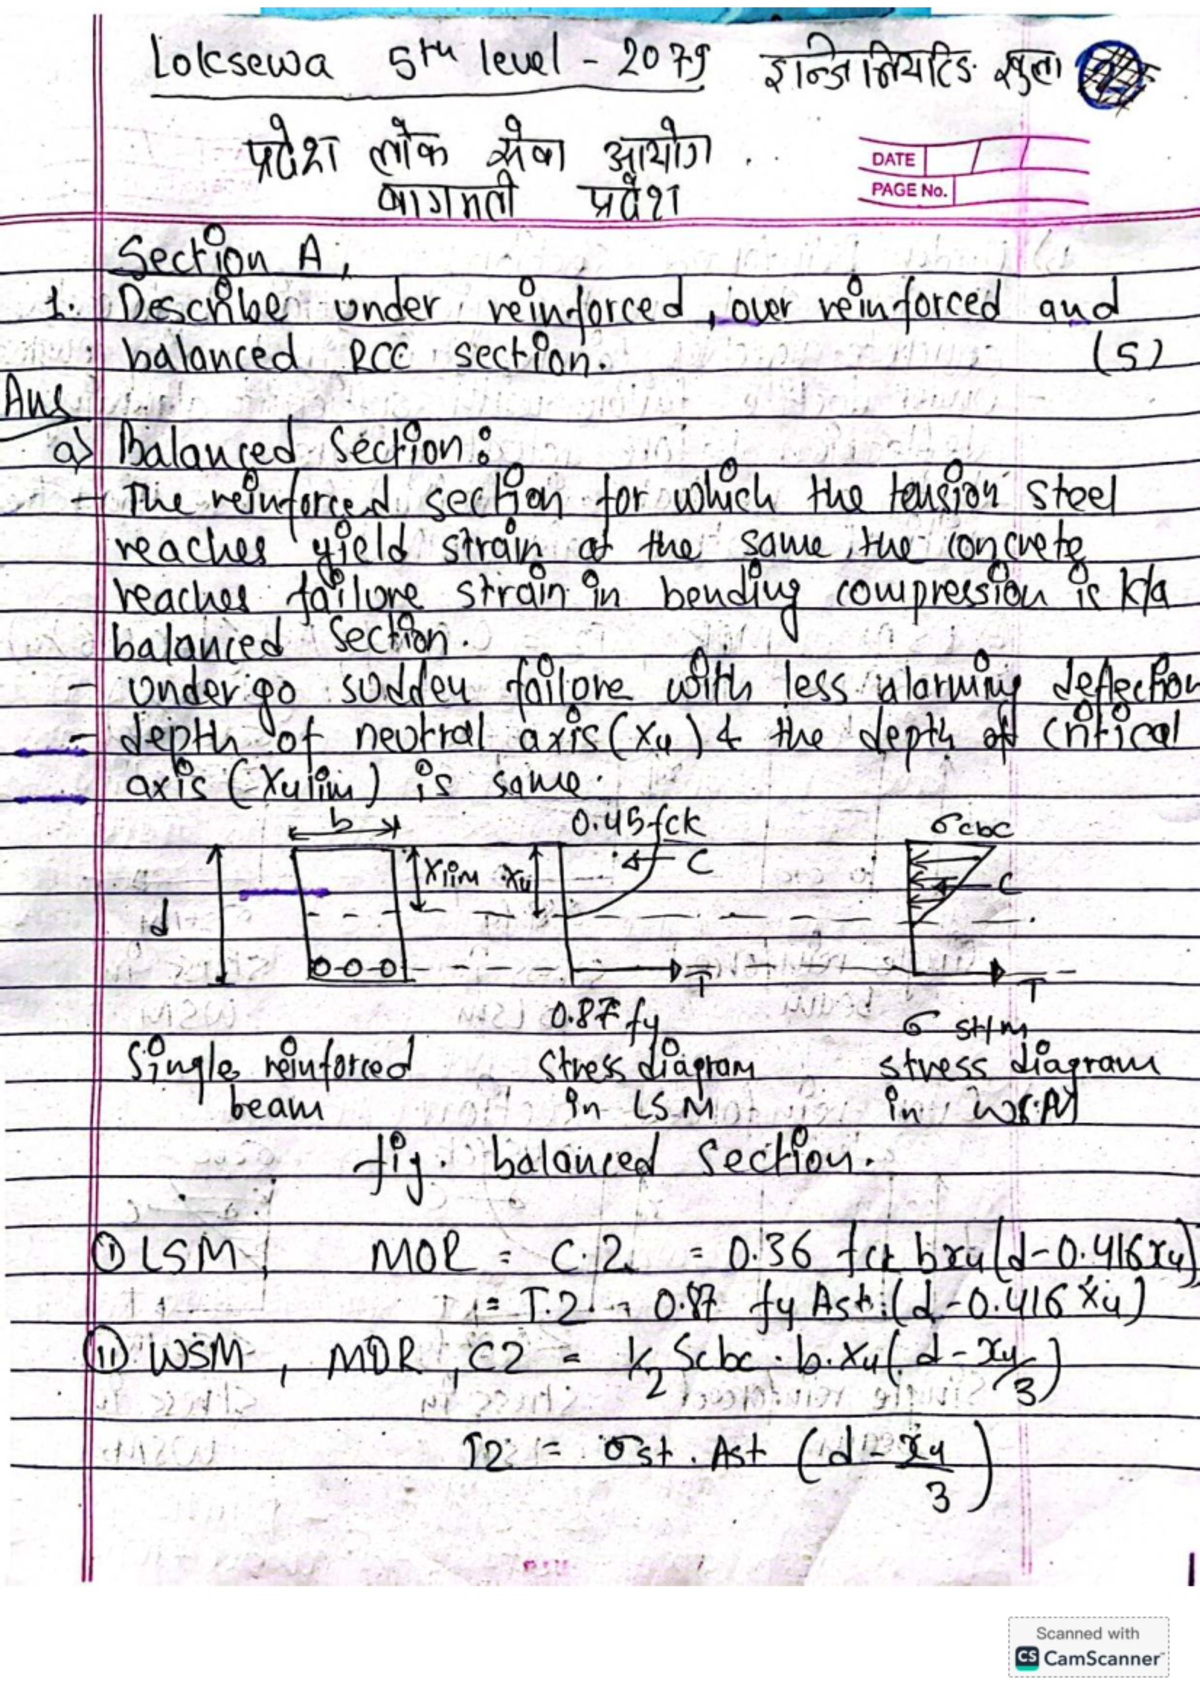 Loksewa 5th level - 2079 इन्जिनियरिङ खुला
प्रदेश लोक सेवा आयोग
बागमती प्रदेश
DATE
PAGE No.
Section A,
1. Describe under reinforced, over reinforced and
balanced RCC section. (5)
Ans
a) Balanced section:
- The reinforced section for which the tension steel
reaches yield strain at the same, the concrete
reaches failure strain in bending compression is k/a
balanced section.
- Undergo sudden failure with less alarming deflection
- depth of neutral axis (xu) & the depth of critical
axis (xulim) is same.
b 0.45fck σcbc
d xlim xu C C
T T
0.87fy σst/m
Single reinforced stress diagram stress diagram
beam in LSM in WSM
fig. balanced section.
(i) LSM, MOR = C.Z = 0.36 fck bxu(d-0.416xu)
= T.Z = 0.87 fy Ast (d-0.416 xu)
(ii) WSM, MOR, CZ = 1/2 Scbc . b. xu (d - xu/3)
TZ = σst . Ast (d - xu/3)
Scanned with
CS CamScanner